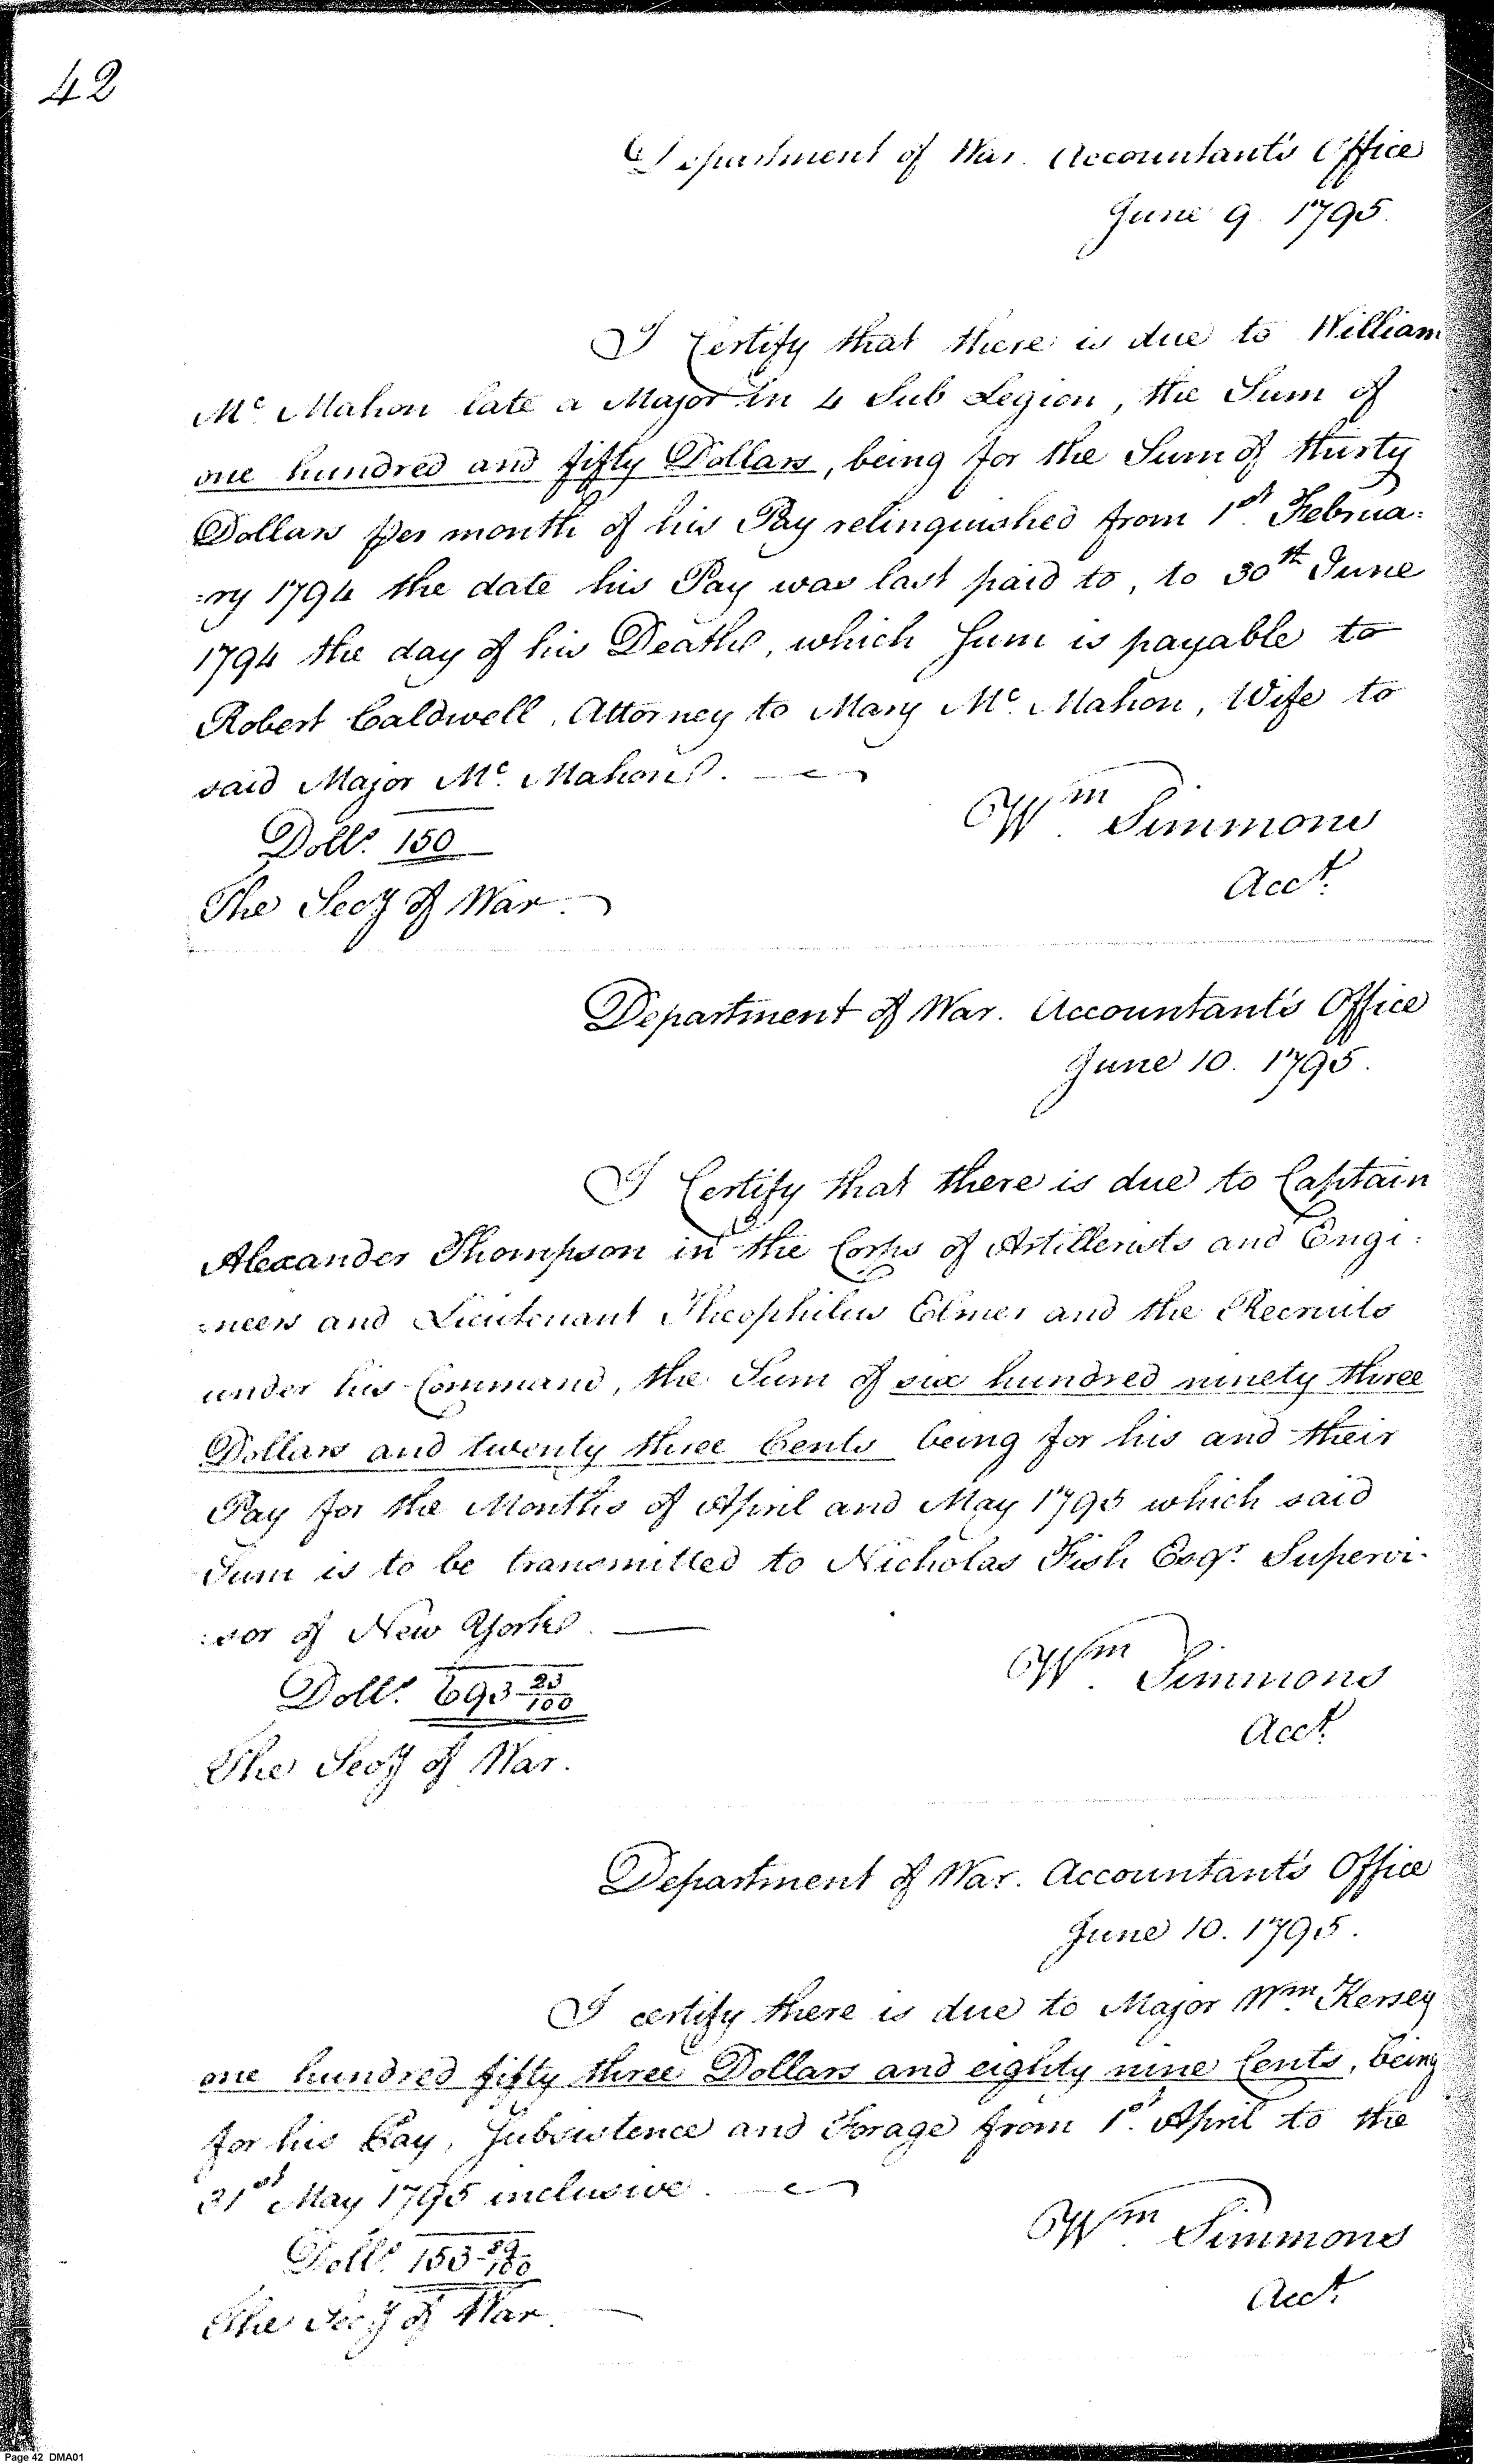 42
Department of War. Accountant's Office
June 9. 1795.
I Certify that there is due to William
Mc. Mahon late a Major in 4 Sub Legion, the Sum of
one hundred and fifty Dollars, being for the Sum of thirty
Dollars per month of his Pay relinquished from 1st. Februa:
:ry 1794 the date his Pay was last paid to, to 30th June
1794 the day of his Death, which Sum is payable to
Robert Caldwell, Attorney to Mary Mc. Mahon, Wife to
said Major Mc. Mahon.
Wm. Simmons
Dolls. 150
Acct.
The Secy of War.
Department of War. Accountant's Office
June 10. 1795.
I Certify that there is due to Captain
Alexander Thompson in the Corps of Artillerists and Engi:
:neers and Lieutenant Theophilus Elmer and the Recruits
under his Command, the Sum of six hundred ninety three
Dollars and twenty three Cents being for his and their
Pay for the Months of April and May 1795 which said
Sum is to be transmitted to Nicholas Fish Esqr. Supervi-
:sor of New York.
Wm. Simmons
Dolls. 693 23/100
Acct.
The Secy of War.
Department of War. Accountant's Office
June 10. 1795.
I certify there is due to Major Wm Kersey
one hundred fifty three Dollars and eighty nine Cents, being
for his Pay, Subsistence and Forage from 1st. April to the
31st May 1795 inclusive.
Wm. Simmons
Dolls. 153 89/100
Acct.
The Secy of War.
Page 42 DMA01